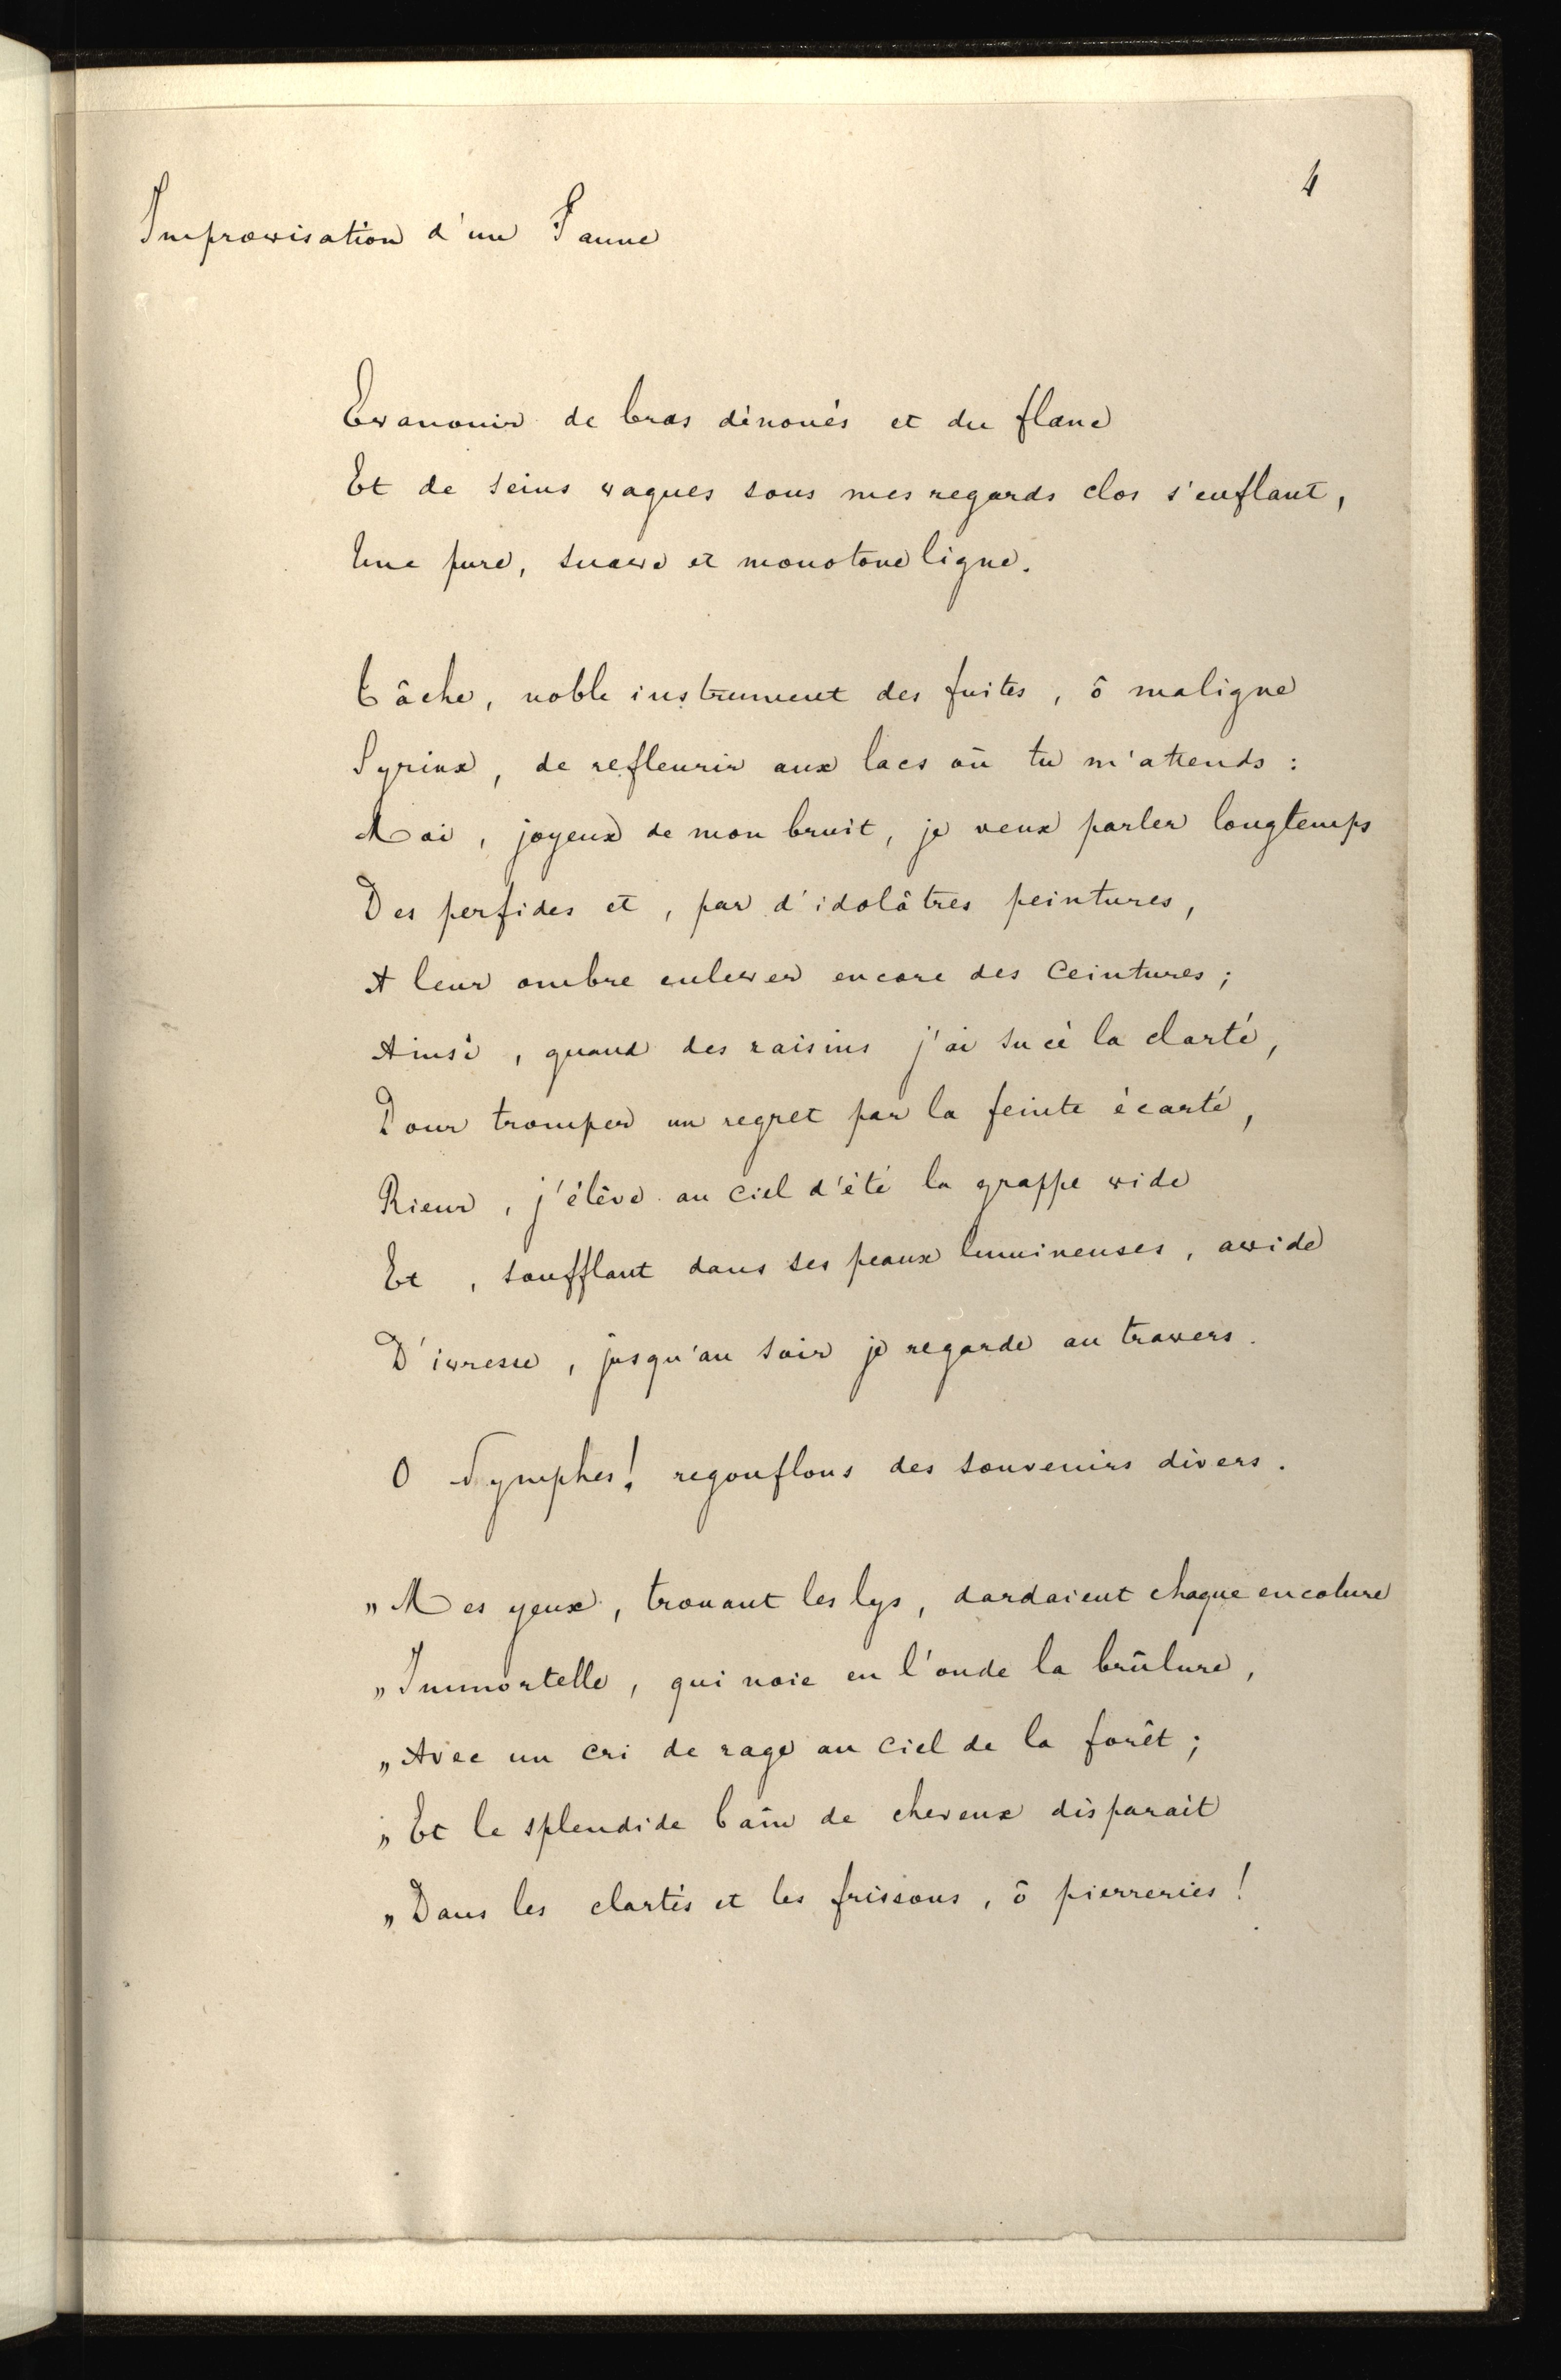 4
Improvisation d'un Faune
Evanouir de bras dénoués et du flanc
Et de seins vagues sous mes regards clos s'enflant,
Une pure, suave et monotone ligne.
Tâche, noble instrument des fuites, ô maligne
Syrinx, de refleurir aux lacs où tu m'attends :
Moi, joyeux de mon bruit, je veux parler longtemps
Des perfides et, par d'idolâtres peintures,
A leur ombre enlever encore des ceintures ;
Ainsi, quand des raisins j'ai sucé la clarté,
Pour tromper un regret par la feinte écarté,
Rieur, j'élève au ciel d'été la grappe vide
Et, soufflant dans ses peaux lumineuses, avide
D'ivresse, jusqu'au soir je regarde au travers.
O Nymphes! regonflons des souvenirs divers.
„Mes yeux, trouant les lys, dardaient chaque encolure
„Immortelle, qui noie en l'onde la brûlure,
„Avec un cri de rage au ciel de la forêt ;
„Et le splendide bain de cheveux disparait
„Dans les clartés et les frissons, ô pierreries !